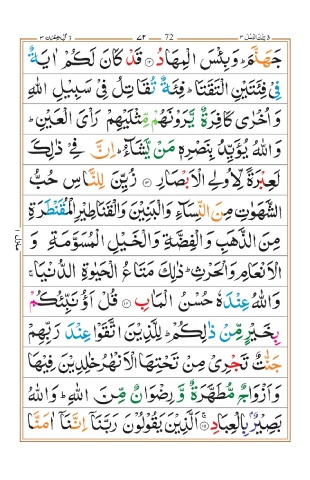 تلك الرسل ٣ ٧٢ 72 ال عمران ٣
جَهَنَّمَ ؕ وَبِئۡسَ الۡمِهَادُ ‏ ﴿۱۲﴾ قَدۡ كَانَ لَكُمۡ اٰيَةٌ
فِىۡ فِئَتَيۡنِ الۡتَقَتَا ؕ فِئَةٌ تُقَاتِلُ فِىۡ سَبِيۡلِ اللّٰهِ
وَاُخۡرٰى كَافِرَةٌ يَّرَوۡنَهُمۡ مِّثۡلَيۡهِمۡ رَاۡىَ الۡعَيۡنِ‌ؕ
وَاللّٰهُ يُؤَيِّدُ بِنَصۡرِهٖ مَنۡ يَّشَآءُ ‌ؕ اِنَّ فِىۡ ذٰ لِكَ
لَعِبۡرَةً لِّاُولِى الۡاَبۡصَارِ ﴿۱۳﴾ زُيِّنَ لِلنَّاسِ حُبُّ
الشَّهَوٰتِ مِنَ النِّسَآءِ وَالۡبَنِيۡنَ وَالۡقَنَاطِيۡرِ الۡمُقَنۡطَرَةِ
مِنَ الذَّهَبِ وَالۡفِضَّةِ وَالۡخَـيۡلِ الۡمُسَوَّمَةِ وَ
الۡاَنۡعَامِ وَالۡحَـرۡثِ‌ؕ ذٰ لِكَ مَتَاعُ الۡحَيٰوةِ الدُّنۡيَا ۚ
وَاللّٰهُ عِنۡدَهٗ حُسۡنُ الۡمَاٰبِ ﴿۱۴﴾ قُلۡ اَؤُنَبِّئُكُمۡ
بِخَيۡرٍ مِّنۡ ذٰ لِكُمۡ‌ؕ لِلَّذِيۡنَ اتَّقَوۡا عِنۡدَ رَبِّهِمۡ
جَنّٰتٌ تَجۡرِىۡ مِنۡ تَحۡتِهَا الۡاَنۡهٰرُ خٰلِدِيۡنَ فِيۡهَا
وَاَزۡوَاجٌ مُّطَهَّرَةٌ وَّرِضۡوَانٌ مِّنَ اللّٰهِ‌ؕ وَاللّٰهُ
بَصِيۡرٌۢ بِالۡعِبَادِ‌ۚ ﴿۱۵﴾ اَلَّذِيۡنَ يَقُوۡلُوۡنَ رَبَّنَاۤ اِنَّنَاۤ اٰمَنَّا
منزل ١